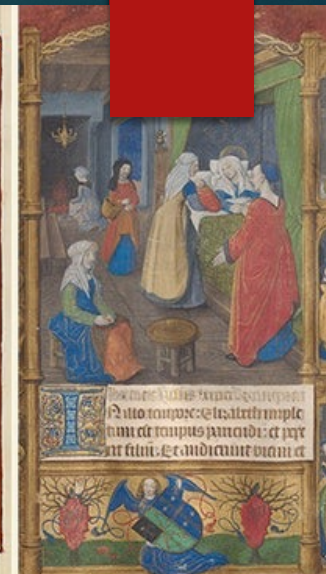 In illo tempore: Elizabeth imple
tum est tempus pariendi: et pepe
rit filium. Et audierunt vicini et